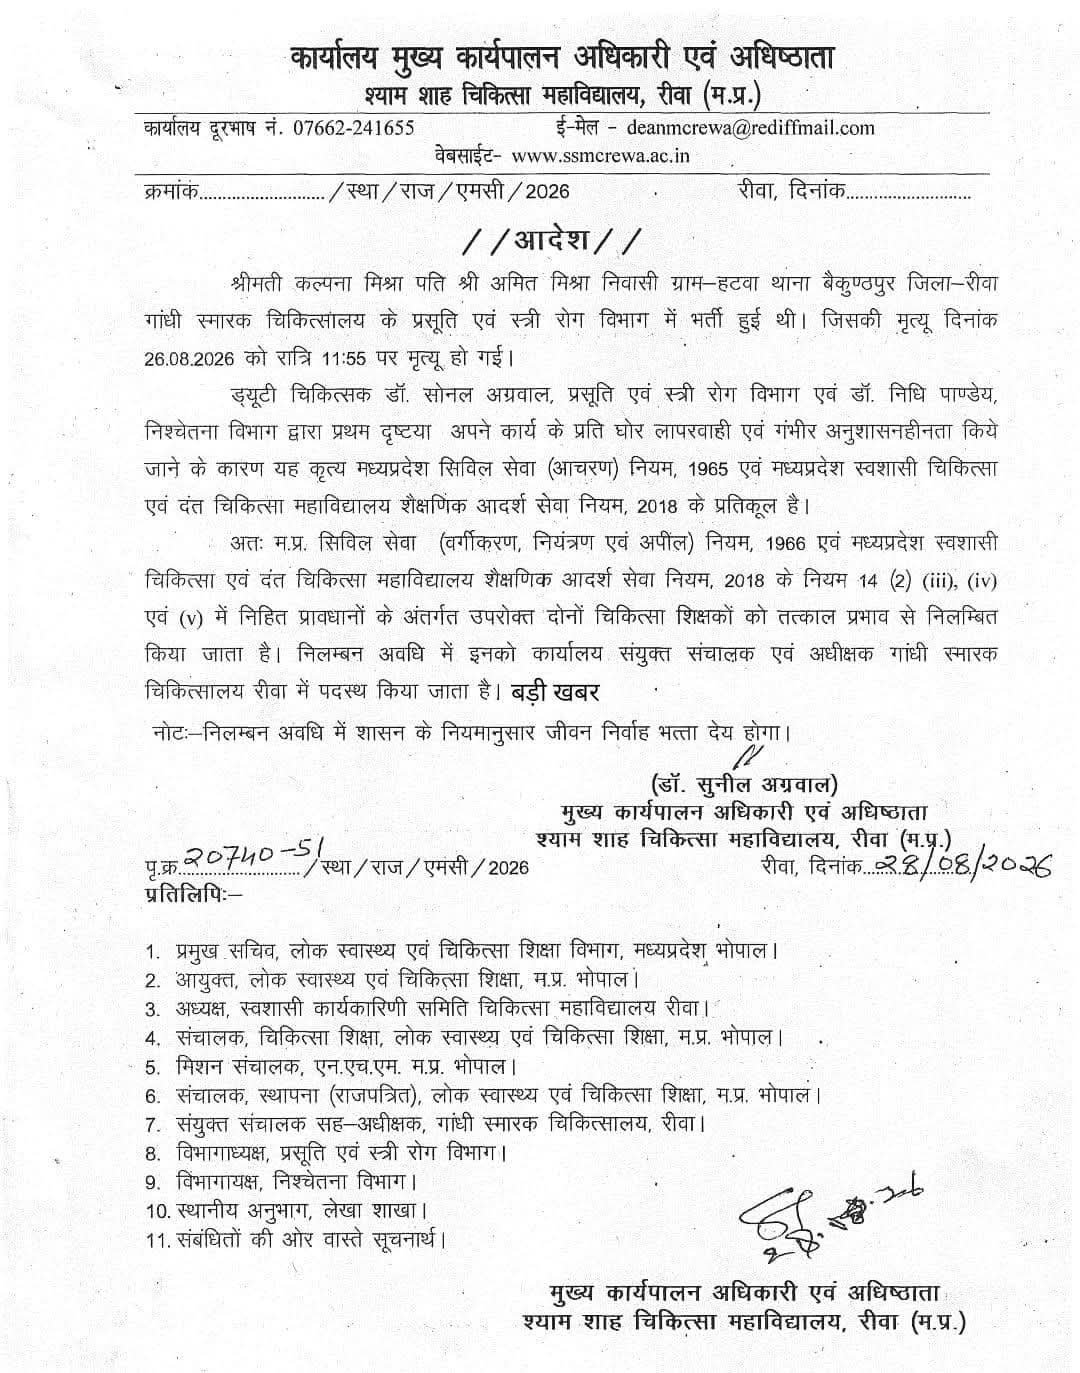 कार्यालय मुख्य कार्यपालन अधिकारी एवं अधिष्ठाता
श्याम शाह चिकित्सा महाविद्यालय, रीवा (म.प्र.)
कार्यालय दूरभाष नं. 07662-241655 ई-मेल - deanmcrewa@rediffmail.com
वेबसाईट- www.ssmcrewa.ac.in
क्रमांक.........................../स्था/राज/एमसी/2026 रीवा, दिनांक...........................
//आदेश//
श्रीमती कल्पना मिश्रा पति श्री अमित मिश्रा निवासी ग्राम–हटवा थाना बैकुण्ठपुर जिला–रीवा
गांधी स्मारक चिकित्सालय के प्रसूति एवं स्त्री रोग विभाग में भर्ती हुई थी। जिसकी मृत्यू दिनांक
26.08.2026 को रात्रि 11:55 पर मृत्यू हो गई।
ड्यूटी चिकित्सक डॉ. सोनल अग्रवाल, प्रसूति एवं स्त्री रोग विभाग एवं डॉ. निधि पाण्डेय,
निश्चेतना विभाग द्वारा प्रथम दृष्टया अपने कार्य के प्रति घोर लापरवाही एवं गंभीर अनुशासनहीनता किये
जाने के कारण यह कृत्य मध्यप्रदेश सिविल सेवा (आचरण) नियम, 1965 एवं मध्यप्रदेश स्वशासी चिकित्सा
एवं दंत चिकित्सा महाविद्यालय शैक्षणिक आदर्श सेवा नियम, 2018 के प्रतिकूल है।
अतः म.प्र. सिविल सेवा (वर्गीकरण, नियंत्रण एवं अपील) नियम, 1966 एवं मध्यप्रदेश स्वशासी
चिकित्सा एवं दंत चिकित्सा महाविद्यालय शैक्षणिक आदर्श सेवा नियम, 2018 के नियम 14 (2) (iii), (iv)
एवं (v) में निहित प्रावधानों के अंतर्गत उपरोक्त दोनों चिकित्सा शिक्षकों को तत्काल प्रभाव से निलम्बित
किया जाता है। निलम्बन अवधि में इनको कार्यालय संयुक्त संचालक एवं अधीक्षक गांधी स्मारक
चिकित्सालय रीवा में पदस्थ किया जाता है। बड़ी खबर
नोटः–निलम्बन अवधि में शासन के नियमानुसार जीवन निर्वाह भत्ता देय होगा।
(डॉ. सुनील अग्रवाल)
मुख्य कार्यपालन अधिकारी एवं अधिष्ठाता
श्याम शाह चिकित्सा महाविद्यालय, रीवा (म.प्र.)
पृ.क्र. 20740-51 /स्था/राज/एमसी/2026 रीवा, दिनांक 28/08/2026
प्रतिलिपिः–
1. प्रमुख सचिव, लोक स्वास्थ्य एवं चिकित्सा शिक्षा विभाग, मध्यप्रदेश भोपाल।
2. आयुक्त, लोक स्वास्थ्य एवं चिकित्सा शिक्षा, म.प्र. भोपाल।
3. अध्यक्ष, स्वशासी कार्यकारिणी समिति चिकित्सा महाविद्यालय रीवा।
4. संचालक, चिकित्सा शिक्षा, लोक स्वास्थ्य एवं चिकित्सा शिक्षा, म.प्र. भोपाल।
5. मिशन संचालक, एन.एच.एम. म.प्र. भोपाल।
6. संचालक, स्थापना (राजपत्रित), लोक स्वास्थ्य एवं चिकित्सा शिक्षा, म.प्र. भोपाल।
7. संयुक्त संचालक सह–अधीक्षक, गांधी स्मारक चिकित्सालय, रीवा।
8. विभागाध्यक्ष, प्रसूति एवं स्त्री रोग विभाग।
9. विभागायक्ष, निश्चेतना विभाग।
10. स्थानीय अनुभाग, लेखा शाखा।
11. संबंधितों की ओर वास्ते सूचनार्थ।
मुख्य कार्यपालन अधिकारी एवं अधिष्ठाता
श्याम शाह चिकित्सा महाविद्यालय, रीवा (म.प्र.)